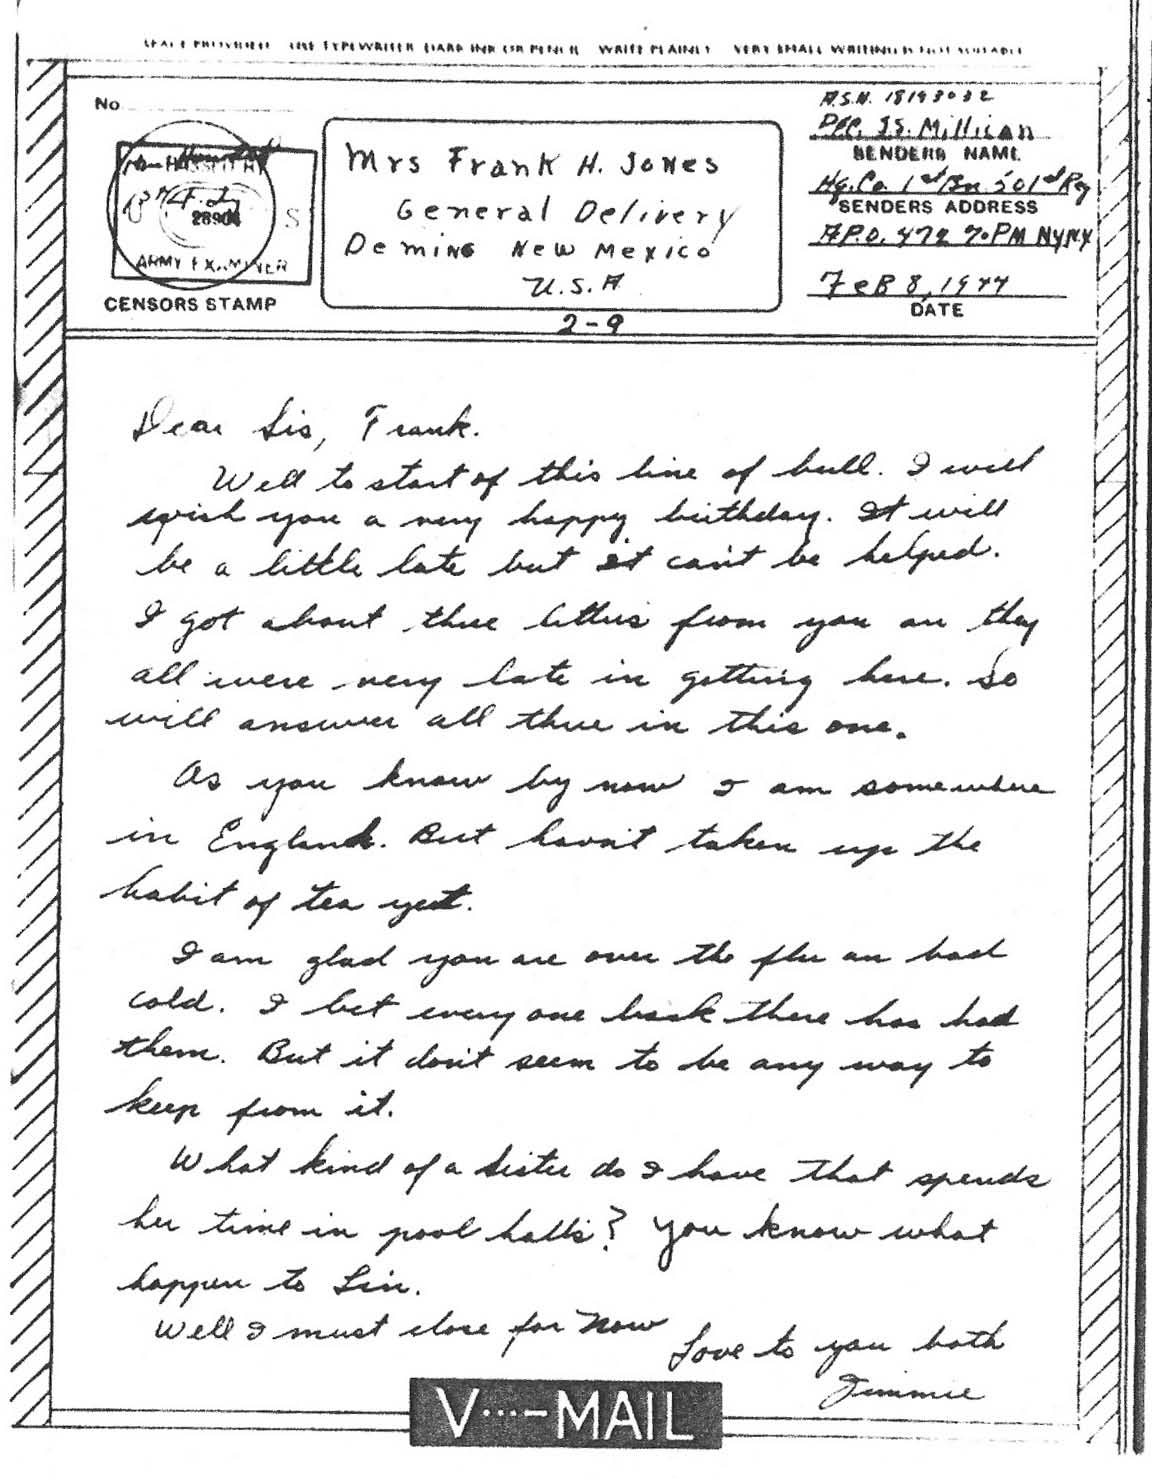 SPACE PROVIDED USE TYPEWRITER DARK INK OR PENCIL WRITE PLAINLY VERY SMALL WRITING IS NOT SUITABLE
No
PASSED BY
28904
S
ARMY EXAMINER
CENSORS STAMP
Mrs Frank H. Jones
General Delivery
Deming New Mexico
U.S.A
2-9
A.S.N. 18193032
Pfc. J.S. Millican
SENDERS NAME
Hq. Co. 1st Bn. 501st Rg
SENDERS ADDRESS
A.P.O. 472 % PM NY, NY
Feb 8, 1944
DATE
Dear Sis, Frank.
Well to start of this line of bull. I will
wish you a very happy birthday. It will
be a little late but it can't be helped.
I got about three letters from you an they
all were very late in getting here. So
will answer all three in this one.
As you know by now I am somewhere
in England. But havn't taken up the
habit of tea yet.
I am glad you are over the flu an bad
cold. I bet every one back there has had
them. But it don't seem to be any way to
keep from it.
What kind of a sister do I have that spends
her time in pool halls? You know what
happen to Lin.
Well I must close for Now
Love to you both
Jimmie
V···–MAIL